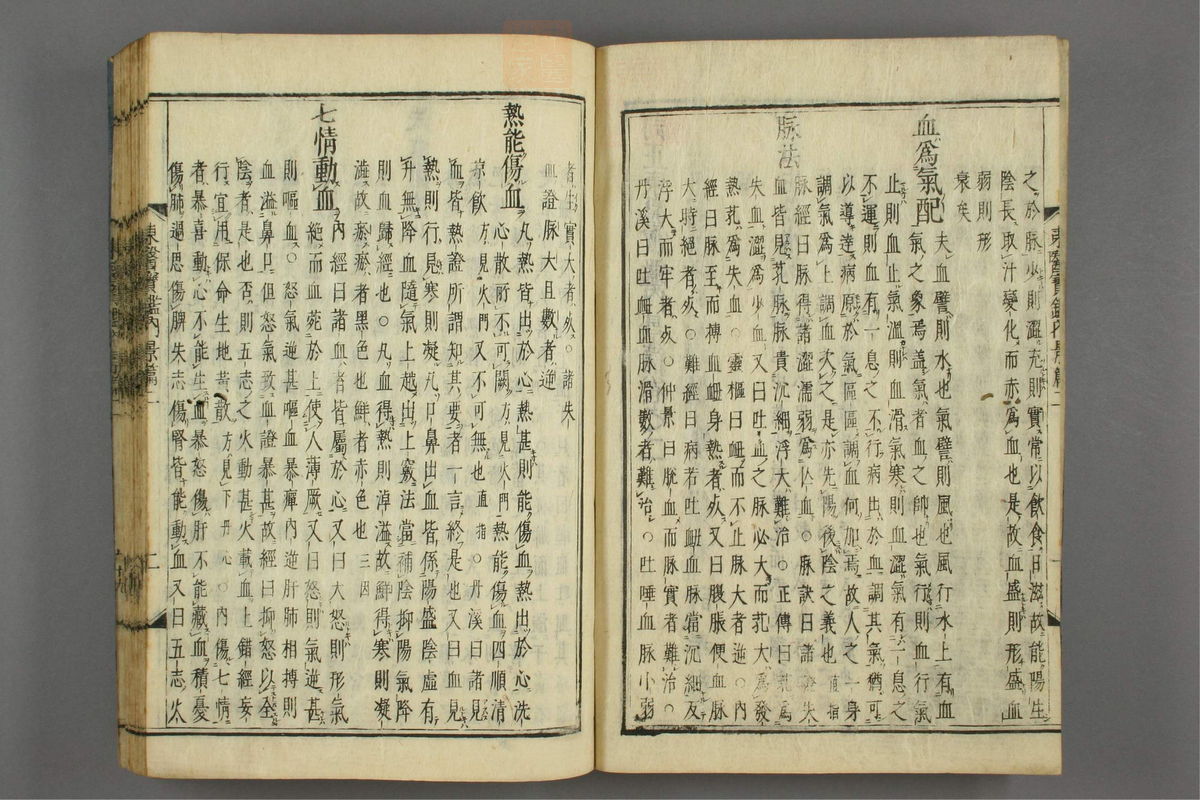 之於脈少則澀充則實常以飲食日滋故能陽生
陰長取汁變化而赤爲血也是故血盛則形盛血
弱則形
衰矣
血爲氣配 夫血譬則水也氣譬則風也風行水上有血
氣之象焉盖氣者血之帥也氣行則血行氣
止則血止氣溫則血滑氣寒則血澀氣有一息之
不運則血有一息之不行病出於血調其氣猶可
以導達病原於氣區區調血何加焉故人之一身
調氣爲上調血次之是亦先陽後陰之義也直指
脈法 脈經曰脈得諸澀濡弱爲亡血○脈訣曰諸證失
血皆見芤脈脈貴沉細浮大難治○正傳曰芤爲
失血澀爲少血又曰吐血之脈必大而芤大爲發
熱芤爲失血○靈樞曰衄而不止脈大者逆○內
經曰脈至而搏血衄身熱者死又曰腹脹便血脈
大時絕者死○難經曰病若吐衄血脈當沉細反
浮大而牢者死○仲景曰脫血而脈實者難治○
丹溪曰吐衄血脈滑數者難治○吐唾血脈小弱
者生實大者死○諸失
血證脈大且數者逆
熱能傷血 凡熱皆出於心熱甚則能傷血熱出於心洗
心散所不可闕方見火門熱能傷血四順清
凉飲方見火門又不可無也直指○丹溪曰諸見
血皆熱證所謂知其要者一言終是也又曰血見
熱則行見寒則凝凡口鼻出血皆係陽盛陰虛有
升無降血隨氣上越出上竅法當補陰抑陽氣降
則血歸經也○凡血得熱則淖溢故鮮得寒則凝
澁故瘀瘀者黑色也鮮者赤色也三因
七情動血 內經曰諸血者皆屬於心又曰大怒則形氣
絕而血菀於上使人薄厥又曰怒則氣逆甚
則嘔血○怒氣逆甚嘔血暴癉內逆肝肺相搏則
血溢鼻口但怒氣致血證暴甚故經曰抑怒以全
陰者是也否則五志之火動甚火載血上錯經妄
行宜用保命生地黃散方見下丹心○內傷七情
者暴喜動心不能生血暴怒傷肝不能藏血積憂
傷肺過思傷脾失志傷腎皆能動血又曰五志火
東醫寶鑑內景篇二
二